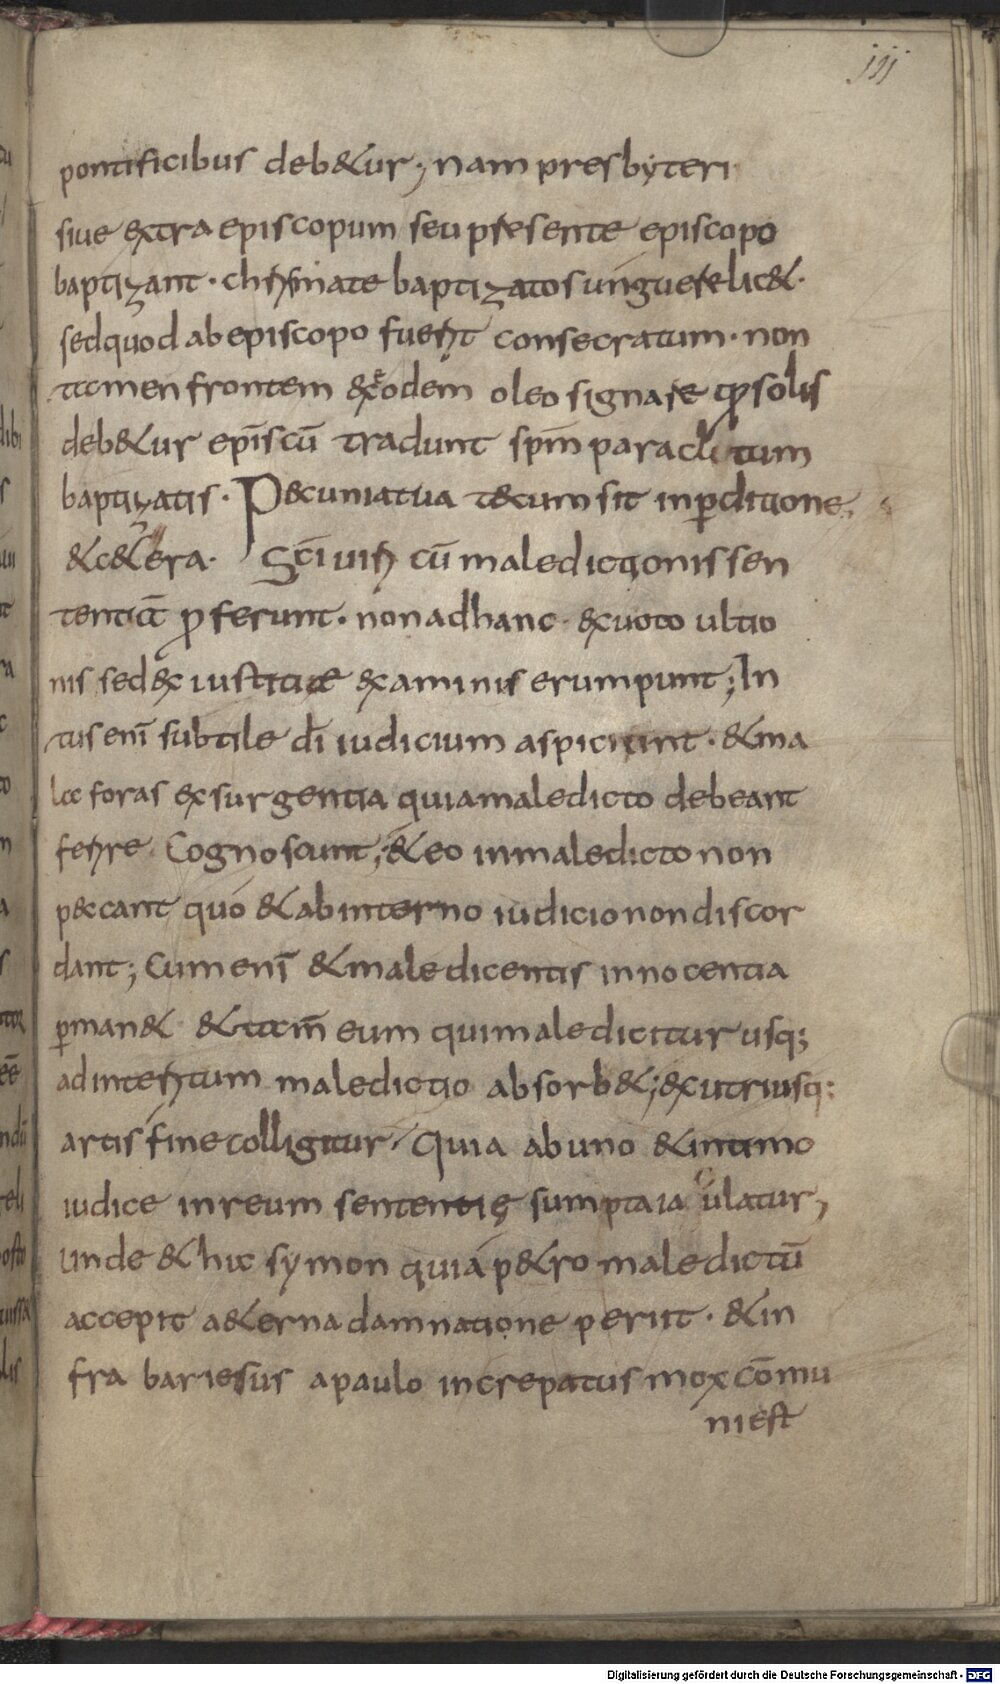 iij
pontificibus deb&ur; nam presbyteri
siue extra episcopum seu presente episcopo
baptizant · chrismate baptizatos unguere lic& ·
sed quod ab episcopo fuerit consecratum · non
tamen frontem & eodem oleo signare qđ solis
deb&ur ep̄iscū tradunt sp̄m paraclitum
baptizatis · Pecunia tua tecum sit in ꝑditione,
&c&era · Sc̄i uiri cū maledictionis sen
tentiā ꝓferunt · non ad hanc ex uoto ultio
nis sed ex iustitiae examinis erumpunt; In
tus enī subtile dī iudicium aspiciunt · & ma
la foras exsurgentia quia maledicto debeant
ferire Cognoscunt; & eo in maledicto non
peccant quó & ab interno iudicio non discor
dant; Cum enī & maledicentis innocentia
ꝑman& & tam̄ eum qui maledicitur usq;
ad interitum maledictio absorb&; ex utriusq:
artis fine colligitur · Quia ab uno & intimo
iudice in reum sententię sumpta iaculatur;
Unde & hic symon quia p&ro maledictū
accepit a&erna damnatione periit · & in
fra bariesus a paulo increpatus mox cōmu
ni est
Digitalisierung gefördert durch die Deutsche Forschungsgemeinschaft - DFG